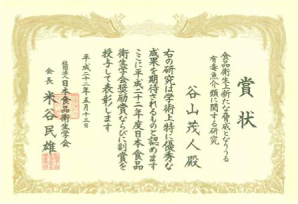 賞状
食品衛生上新たな脅威となりうる
有毒魚介類に関する研究
谷山茂人殿
右の研究は学術上特に優秀な
成果を期待されるものと認めます
ここに平成二十二年度日本食品
衛生学会奨励賞ならびに副賞を
授与して表彰します
平成二十二年五月十三日
社団法人日本食品衛生学会
会長 米谷民雄